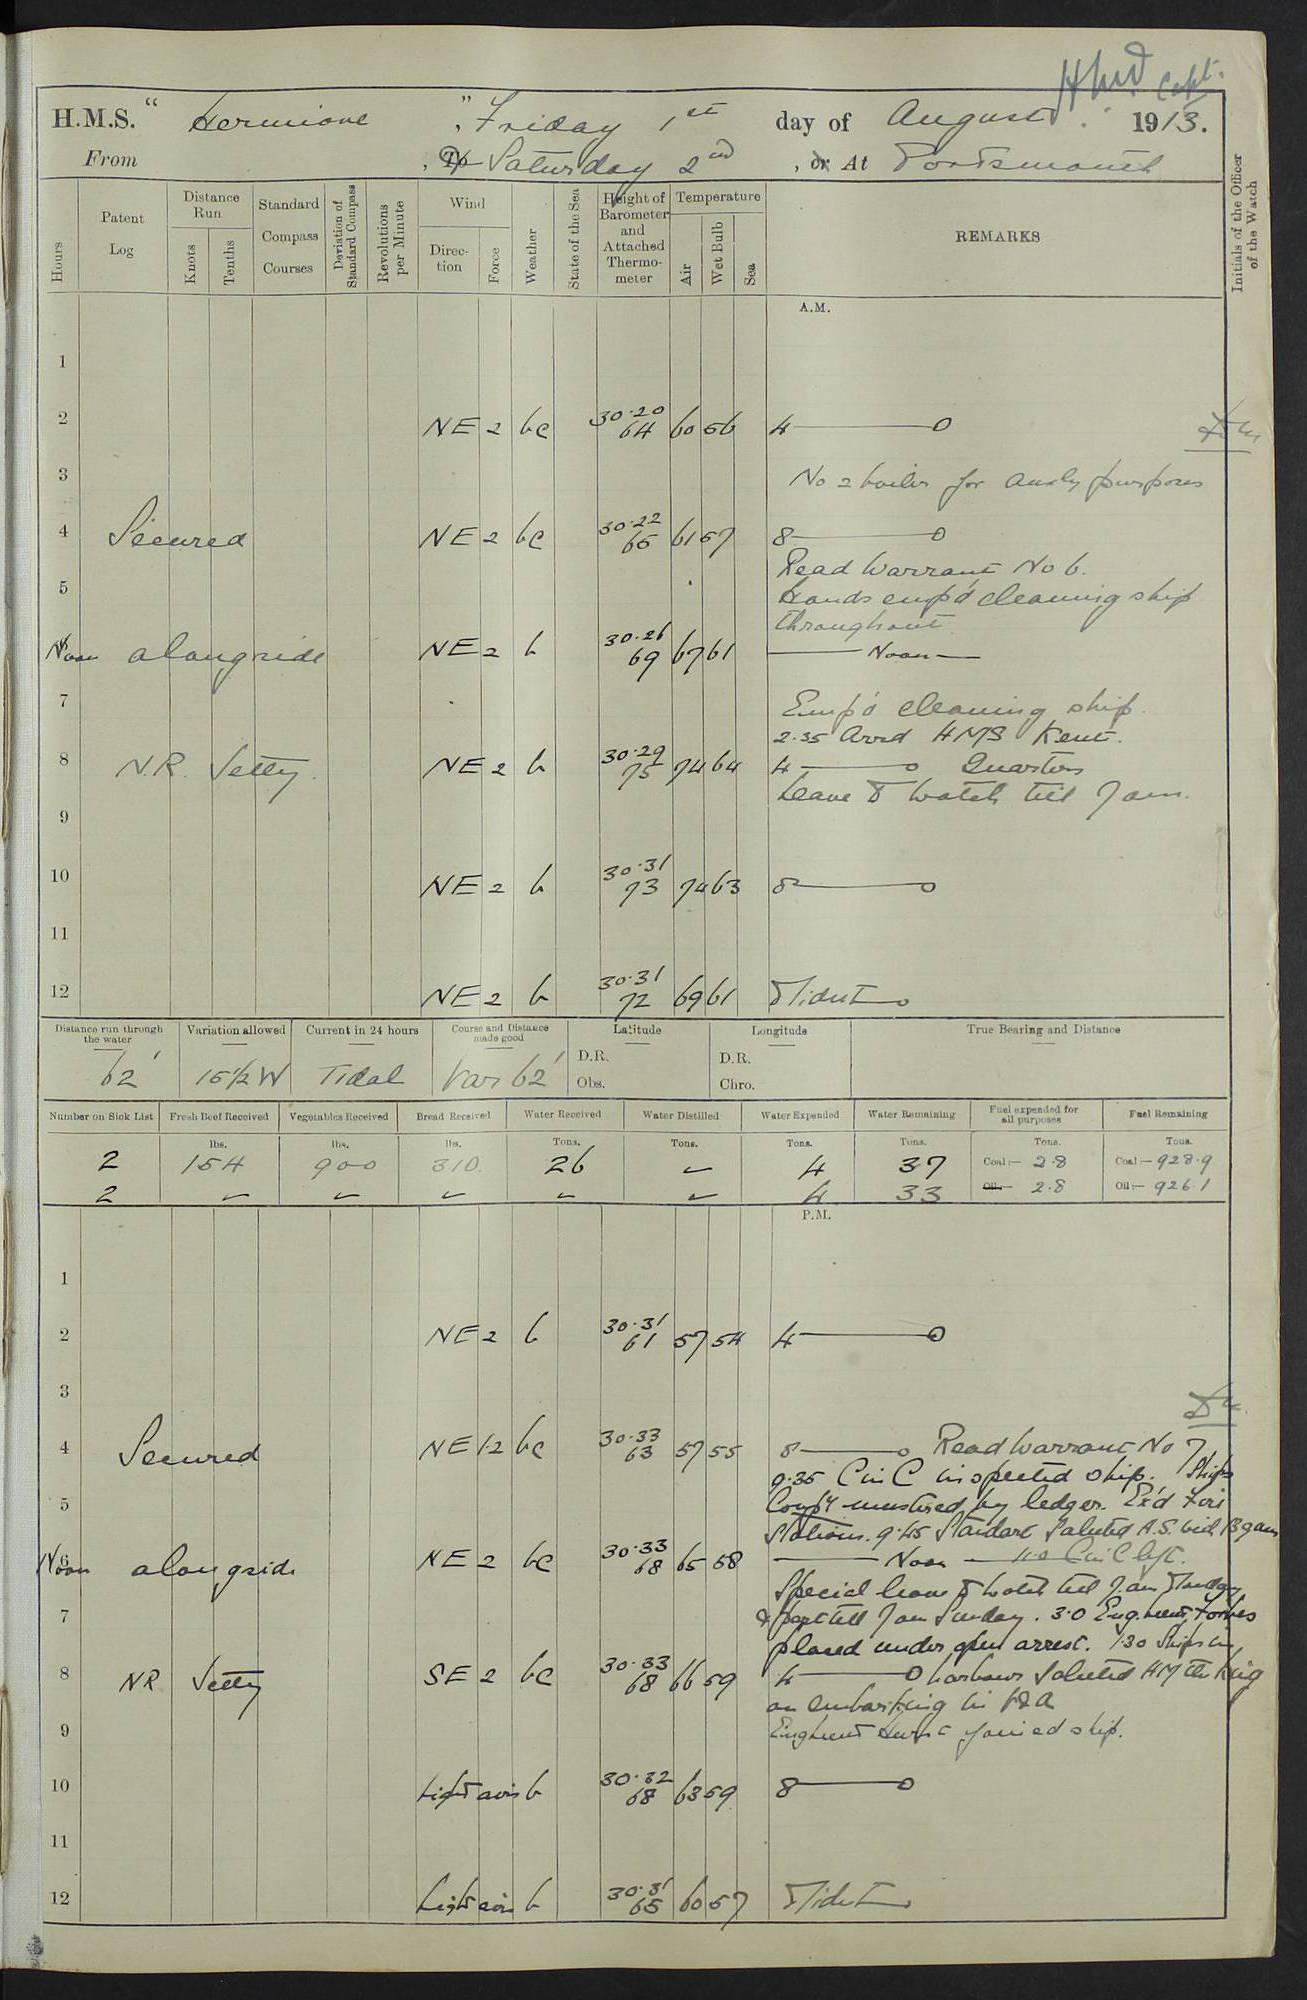 Capt.
H.M.S. "Hermione", Friday 1st day of August 1913.
From , To Saturday 2nd , or At Portsmouth
Hours
Patent Log
Distance Run
Knots
Tenths
Standard Compass Courses
Deviation of Standard Compass
Revolutions per Minute
Wind
Direction
Force
Weather
State of the Sea
Height of Barometer and Attached Thermometer
Temperature
Air
Wet Bulb
Sea
REMARKS
Initials of the Officer of the Watch
A.M.
1
30.20
2 NE 2 bc 64 60 56 4
3 No 2 boiler for auxly purposes
30.22
4 Secured NE 2 bc 65 61 57 8
Read Warrant No 6.
5 Hands emp'd cleaning ship
throughout
30.26
Noon alongside NE 2 b 69 67 61 Noon
7 Emp'd cleaning ship.
2.35 Arrd HMS Kent.
30.29
8 N.R. Jetty. NE 2 b 75 74 64 4 Quarters
Leave to watch till 7 am.
9
30.31
10 NE 2 b 73 74 63 8
11
30.31
12 NE 2 b 72 69 61 Midnt
Distance run through the water
Variation allowed
Current in 24 hours
Course and Distance made good
Latitude
Longitude
True Bearing and Distance
D.R. D.R.
62' 15½ W Tidal Var 62' Obs. Chro.
Number on Sick List
Fresh Beef Received
Vegetables Received
Bread Received
Water Received
Water Distilled
Water Expended
Water Remaining
Fuel expended for all purposes
Fuel Remaining
lbs. lbs. lbs. Tons. Tons. Tons. Tons. Tons. Tons.
2 154 900 310. 26 ✓ 4 37 Coal:— 2.8 Coal:— 928.9
2 ✓ ✓ ✓ ✓ ✓ 4 33 Oil:— 2.8 Oil:— 926.1
P.M.
1
30.31
2 NE 2 b 61 57 54 4
3
30.33
4 Secured NE 1.2 bc 63 57 55 8 Read Warrant No 7
9.35 C in C inspected ship. Ships
5 Comp'y mustered by ledger. Ex'd Fire
Stations. 9.45 Standard Saluted
30.33
Noon 6 alongside NE 2 bc 68 65 58 Noon 11.0 C in C left.
Special leave to watch till 7 am Monday
7 & part till 7 am Sunday. 3.0 Eng. Lieut Forbes
placed under open arrest. 1.30 Ships in
30.33
8 NR Jetty SE 2 bc 68 66 59 4 harbour saluted HM the King
on embarking in V&A
9 Eng Lieut joined ship.
30.32
10 Light airs b 68 63 59 8
11
30.31
12 Light airs b 65 60 57 Midnt